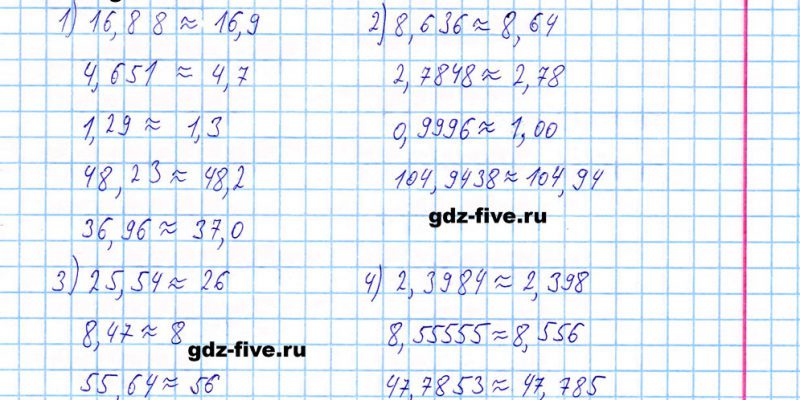 1) 16,88 ≈ 16,9
4,651 ≈ 4,7
1,29 ≈ 1,3
48,23 ≈ 48,2
36,96 ≈ 37,0
2) 8,636 ≈ 8,64
2,7848 ≈ 2,78
0,9996 ≈ 1,00
104,9438 ≈ 104,94
gdz-five.ru
3) 25,54 ≈ 26
8,47 ≈ 8
gdz-five.ru
55,64 ≈ 56
4) 2,3984 ≈ 2,398
8,55555 ≈ 8,556
47,7853 ≈ 47,785